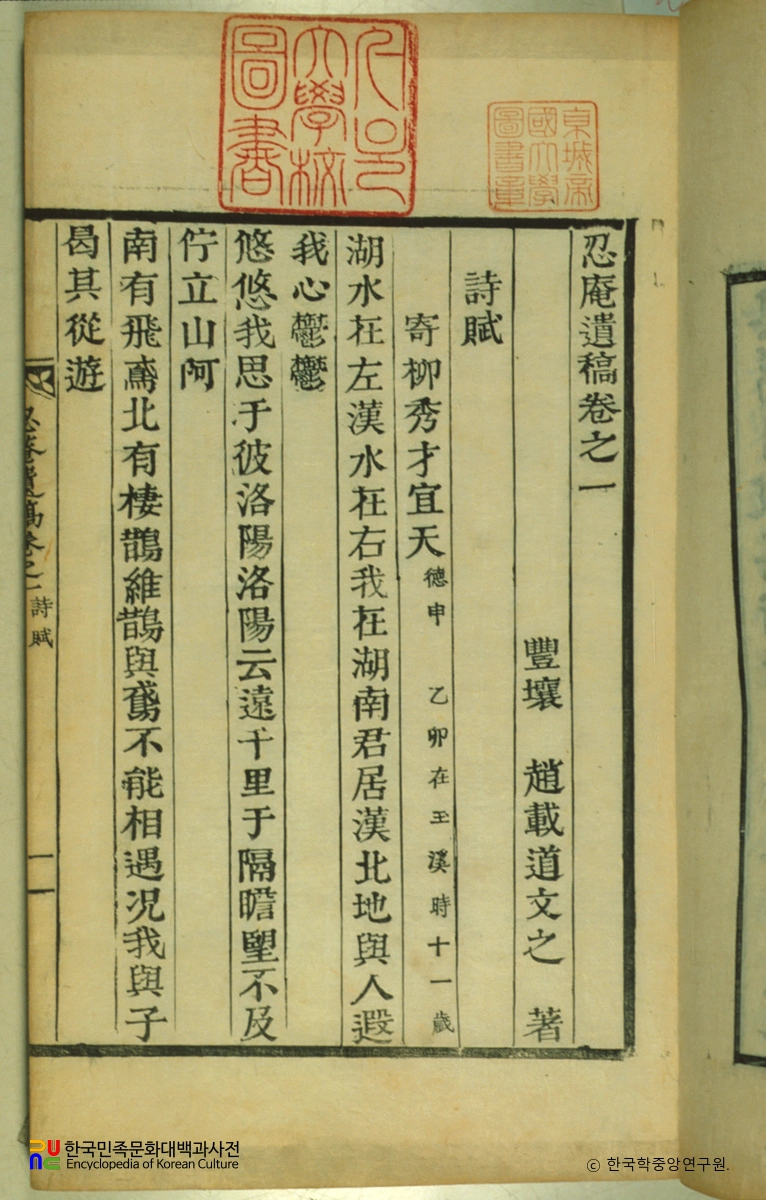 忍庵遺稿卷之一
豐壤 趙載道文之 著
詩賦
寄柳秀才宜天德申 乙卯在玉溪時十一歲
湖水在左漢水在右我在湖南君居漢北地與人遐
我心鬱鬱
悠悠我思于彼洛陽洛陽云遠千里于隔瞻望不及
佇立山阿
南有飛鳶北有棲鵲維鵲與鳶不能相遇況我與子
曷其從遊
忍菴遺稿卷之一 詩賦 一
東城帝國大學圖書章
大學校圖書
한국민족문화대백과사전
Encyclopedia of Korean Culture
© 한국학중앙연구원.